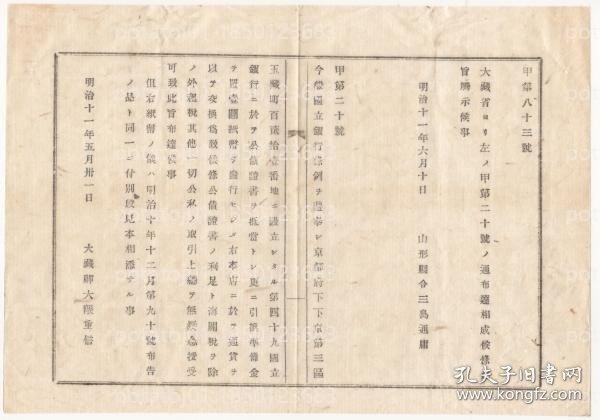 甲第八十三號
大藏省ヨリ左ノ甲第二十號ノ通布達相成候條
旨揭示候事
明治十一年六月十日　山形縣令三島通庸
甲第二十號
今般國立銀行條例ヲ遵奉シ京都府下下京第三區
玉藏町百貳拾壹番地ニ設立シタル第四十九國立
銀行ニ於テ公債證書ヲ抵當トシ更ニ引換準備金
ヲ置壹圓紙幣ヲ發行セシメ右本店ニ於テ通貨ヲ
以テ交換爲致候條公債證書ノ利足ト海關稅ヲ除
ノ外租稅其他一切公私ノ取引上總テ無差支授受
可致此旨布達候事
但右紙幣ノ儀ハ明治十年十二月第九十號布告
ノ品ト同一ニ付別段見本相添サル事
明治十一年五月卅一日　大藏卿大隈重信
孔夫子旧书网
www.kongfz.com